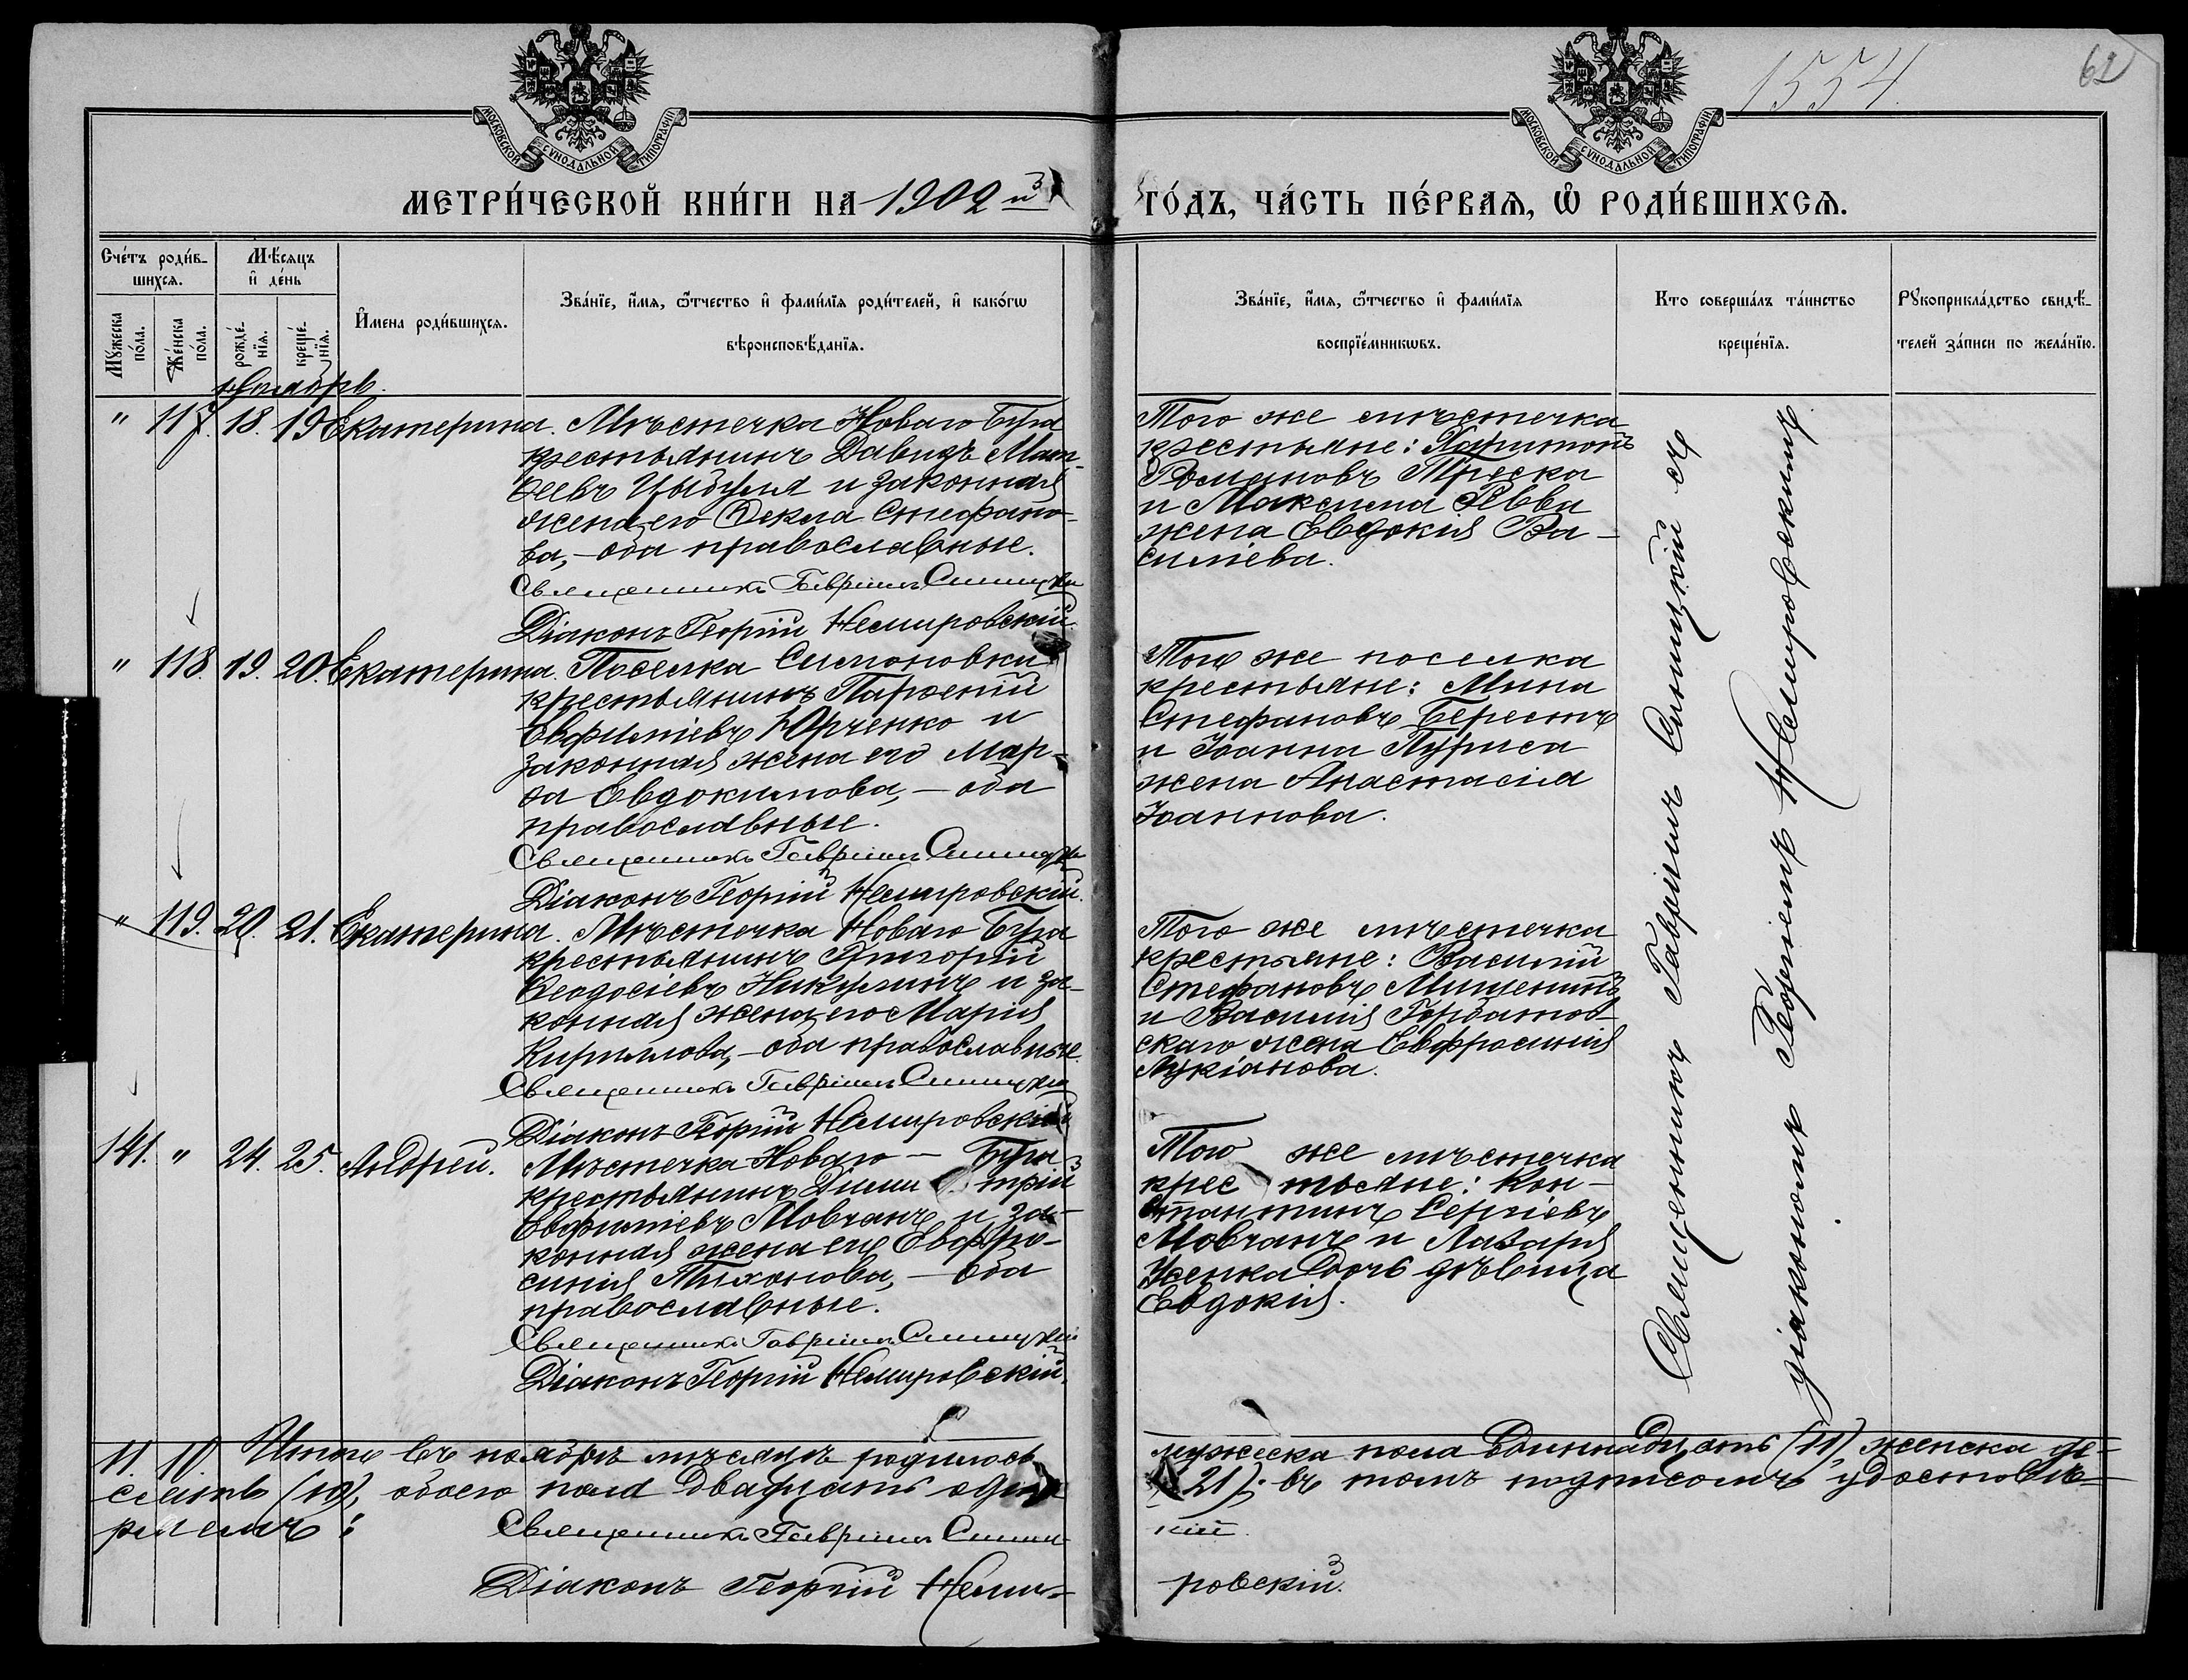 1554.
62
МОСКОВСКОЙ СѴНОДАЛЬНОЙ ТИПОГРАФІИ
МОСКОВСКОЙ СѴНОДАЛЬНОЙ ТИПОГРАФІИ
МЕТРИ́ЧЕСКОЙ КНИ́ГИ НА 1902 й
ГО́ДЪ, ЧА́СТЬ ПЕ́РВАЯ, Ѽ РОДИ́ВШИХСЯ.
Сче́тъ роди́в-
шихся.
Мѣ́сяцъ
и де́нь
Мꙋжеска по́ла.
Же́нска по́ла.
рожде́нїя.
креще́нїя.
И҆мена роди́вшихся.
Зва́нїе, и҆́мя, ѻ҆́тчество и҆ фами́лїя роди́телей, и҆ како́гѡ
вѣроисповѣ́данїя.
Зва́нїе, и҆́мя, ѻ҆́тчество и҆ фами́лїя
воспрїе́мникѡвъ.
Кто соверша́лъ та́инство
креще́нїя.
Рꙋкоприкла́дство свидѣ́-
телей за́писи по жела́нїю.
Ноябрь.
" 117. 18. 19 Екатерина. Мѣстечка Новаго Буга
крестьянинъ Давидъ Мат-
ѳеевъ Цыбуля и законная
жена его Ѳекла Стефано-
ва, – оба православные.
Священникъ Гавріилъ Синицкій
Діаконъ Георгій Немировскій.
Того же мѣстечка
крестьяне: Харитонъ
Романовъ Треска
и Максима Ревы
жена Евдокія Ва-
силіева.
" 118. 19. 20. Екатерина. Поселка Симоновки
крестьянинъ Парѳеній
Евфиміевъ Юрченко и
законная жена его Мар-
ѳа Евдокимова, – оба
православные.
Священникъ Гавріилъ Синицкій
Діаконъ Георгій Немировскій.
Того же поселка
крестьяне: Мина
Стефановъ Берестъ
и Іоанна Пуриса
жена Анастасія
Іоаннова.
" 119. 20. 21. Екатерина. Мѣстечка Новаго Буга
крестьянинъ Григорій
Ѳеодосіевъ Никулинъ и за-
конная жена его Марія
Кириллова, – оба православные.
Священникъ Гавріилъ Синицкій
Діаконъ Георгій Немировскій
Того же мѣстечка
крестьяне: Василій
Стефановъ Мишенинъ
и Василія Горбатов-
скаго жена Евфросинія
Лукіанова.
141. " 24. 25. Андрей. Мѣстечка Новаго – Буга
крестьянинъ Дими трій
Евфиміевъ Мовчанъ и за-
конная жена его Евфро-
синія Тихонова, – оба
православные.
Священникъ Гавріилъ Синицкій
Діаконъ Георгій Немировскій.
Того же мѣстечка
крес тьяне: Кон-
стантинъ Сергіевъ
Мовчанъ и Лазаря
Усенка дочь дѣвица
Евдокія.
Священникъ Гавріилъ Синицкій съ
діакономъ Георгіемъ Немировскимъ.
11. 10. Итого въ ноябрѣ мѣсяцѣ родилось
мужеска пола одиннадцать (11) женска де-
сять (10), обоего пола двадцать одинъ
(21); въ томъ подписомъ удостовѣ-
ряемъ:
Священникъ Гавріилъ Синиц
кій
Діаконъ Георгій Неми-
ровскій.